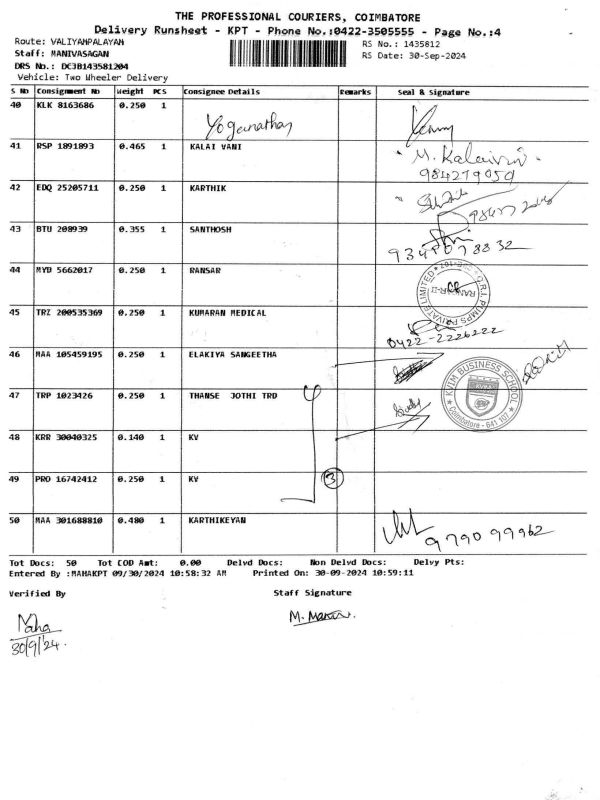 THE PROFESSIONAL COURIERS, COIMBATORE
Delivery Runsheet - KPT - Phone No.:0422-3505555 - Page No.:4
Route: VALIYAMPALAYAM
RS No.: 1435812
Staff: MANIVASAGAN
RS Date: 30-Sep-2024
DRS No.: DCJB143581204
Vehicle: Two Wheeler Delivery
S No Consignment No Weight PCS Consignee Details Remarks Seal & Signature
40 KLK 8163686 0.250 1
Yoganathan
41 RSP 1891893 0.465 1 KALAI VANI
M. Kalaivani
984279059
42 EDQ 25205711 0.250 1 KARTHIK
43 BTU 208939 0.355 1 SANTHOSH
44 MYD 5662017 0.250 1 RANSAR
Q.R.I. PUMPS PRIVATE LIMITED
45 TRZ 200535369 0.250 1 KUMARAN MEDICAL
0422-2226222
46 MAA 105459195 0.250 1 ELAKIYA SANGEETHA
KVIM BUSINESS SCHOOL
Coimbatore - 641 107
47 TRP 1023426 0.250 1 THANSE JOTHI TRD
48 KRR 30040325 0.140 1 KV
49 PRO 16742412 0.250 1 KV
3
50 MAA 301688810 0.480 1 KARTHIKEYAN
9790 99962
Tot Docs: 50 Tot COD Amt: 0.00 Delvd Docs: Non Delvd Docs: Delvy Pts:
Entered By :MAHAKPT 09/30/2024 10:58:32 AM Printed On: 30-09-2024 10:59:11
Verified By Staff Signature
Maha
30/9/24.